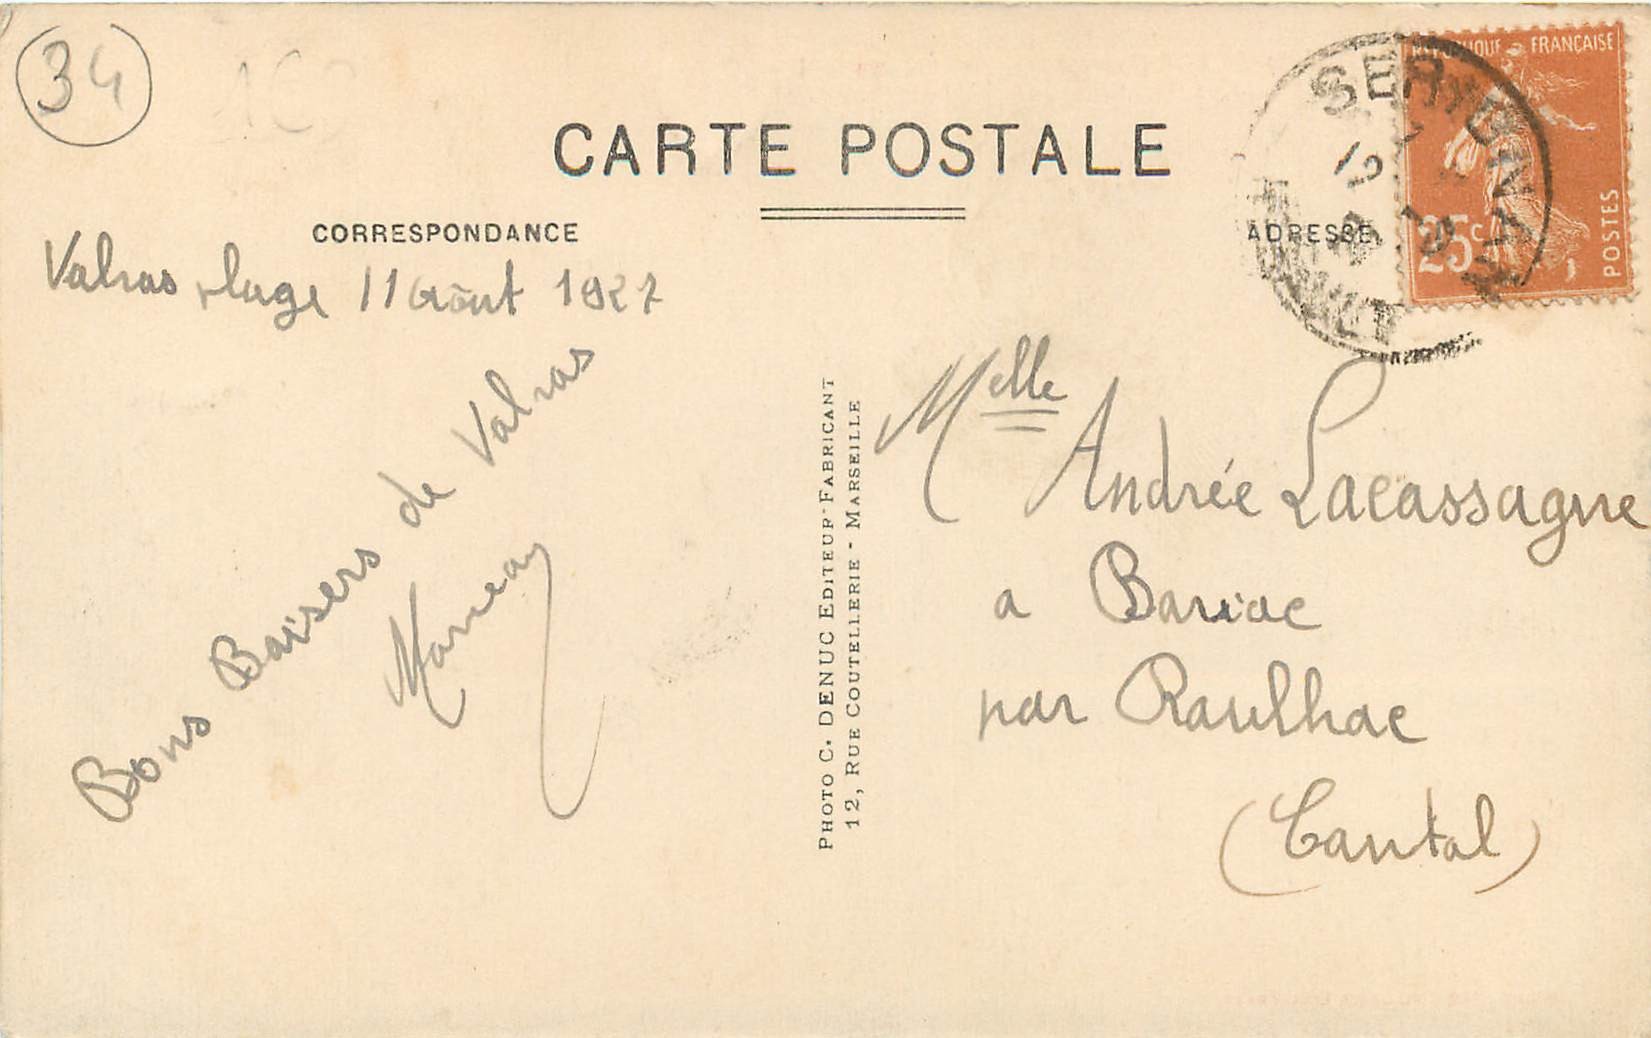 34
CARTE POSTALE
CORRESPONDANCE
ADRESSE
REPUBLIQUE FRANÇAISE
25c
POSTES
SERIGNAN
12
Valras plage 11 Août 1927
Bons Baisers de Valras
PHOTO C. DENUC EDITEUR-FABRICANT
12, RUE COUTELLERIE - MARSEILLE
Melle Andrée Lacassagne
a Bariac
par Raulhac
(Cantal)